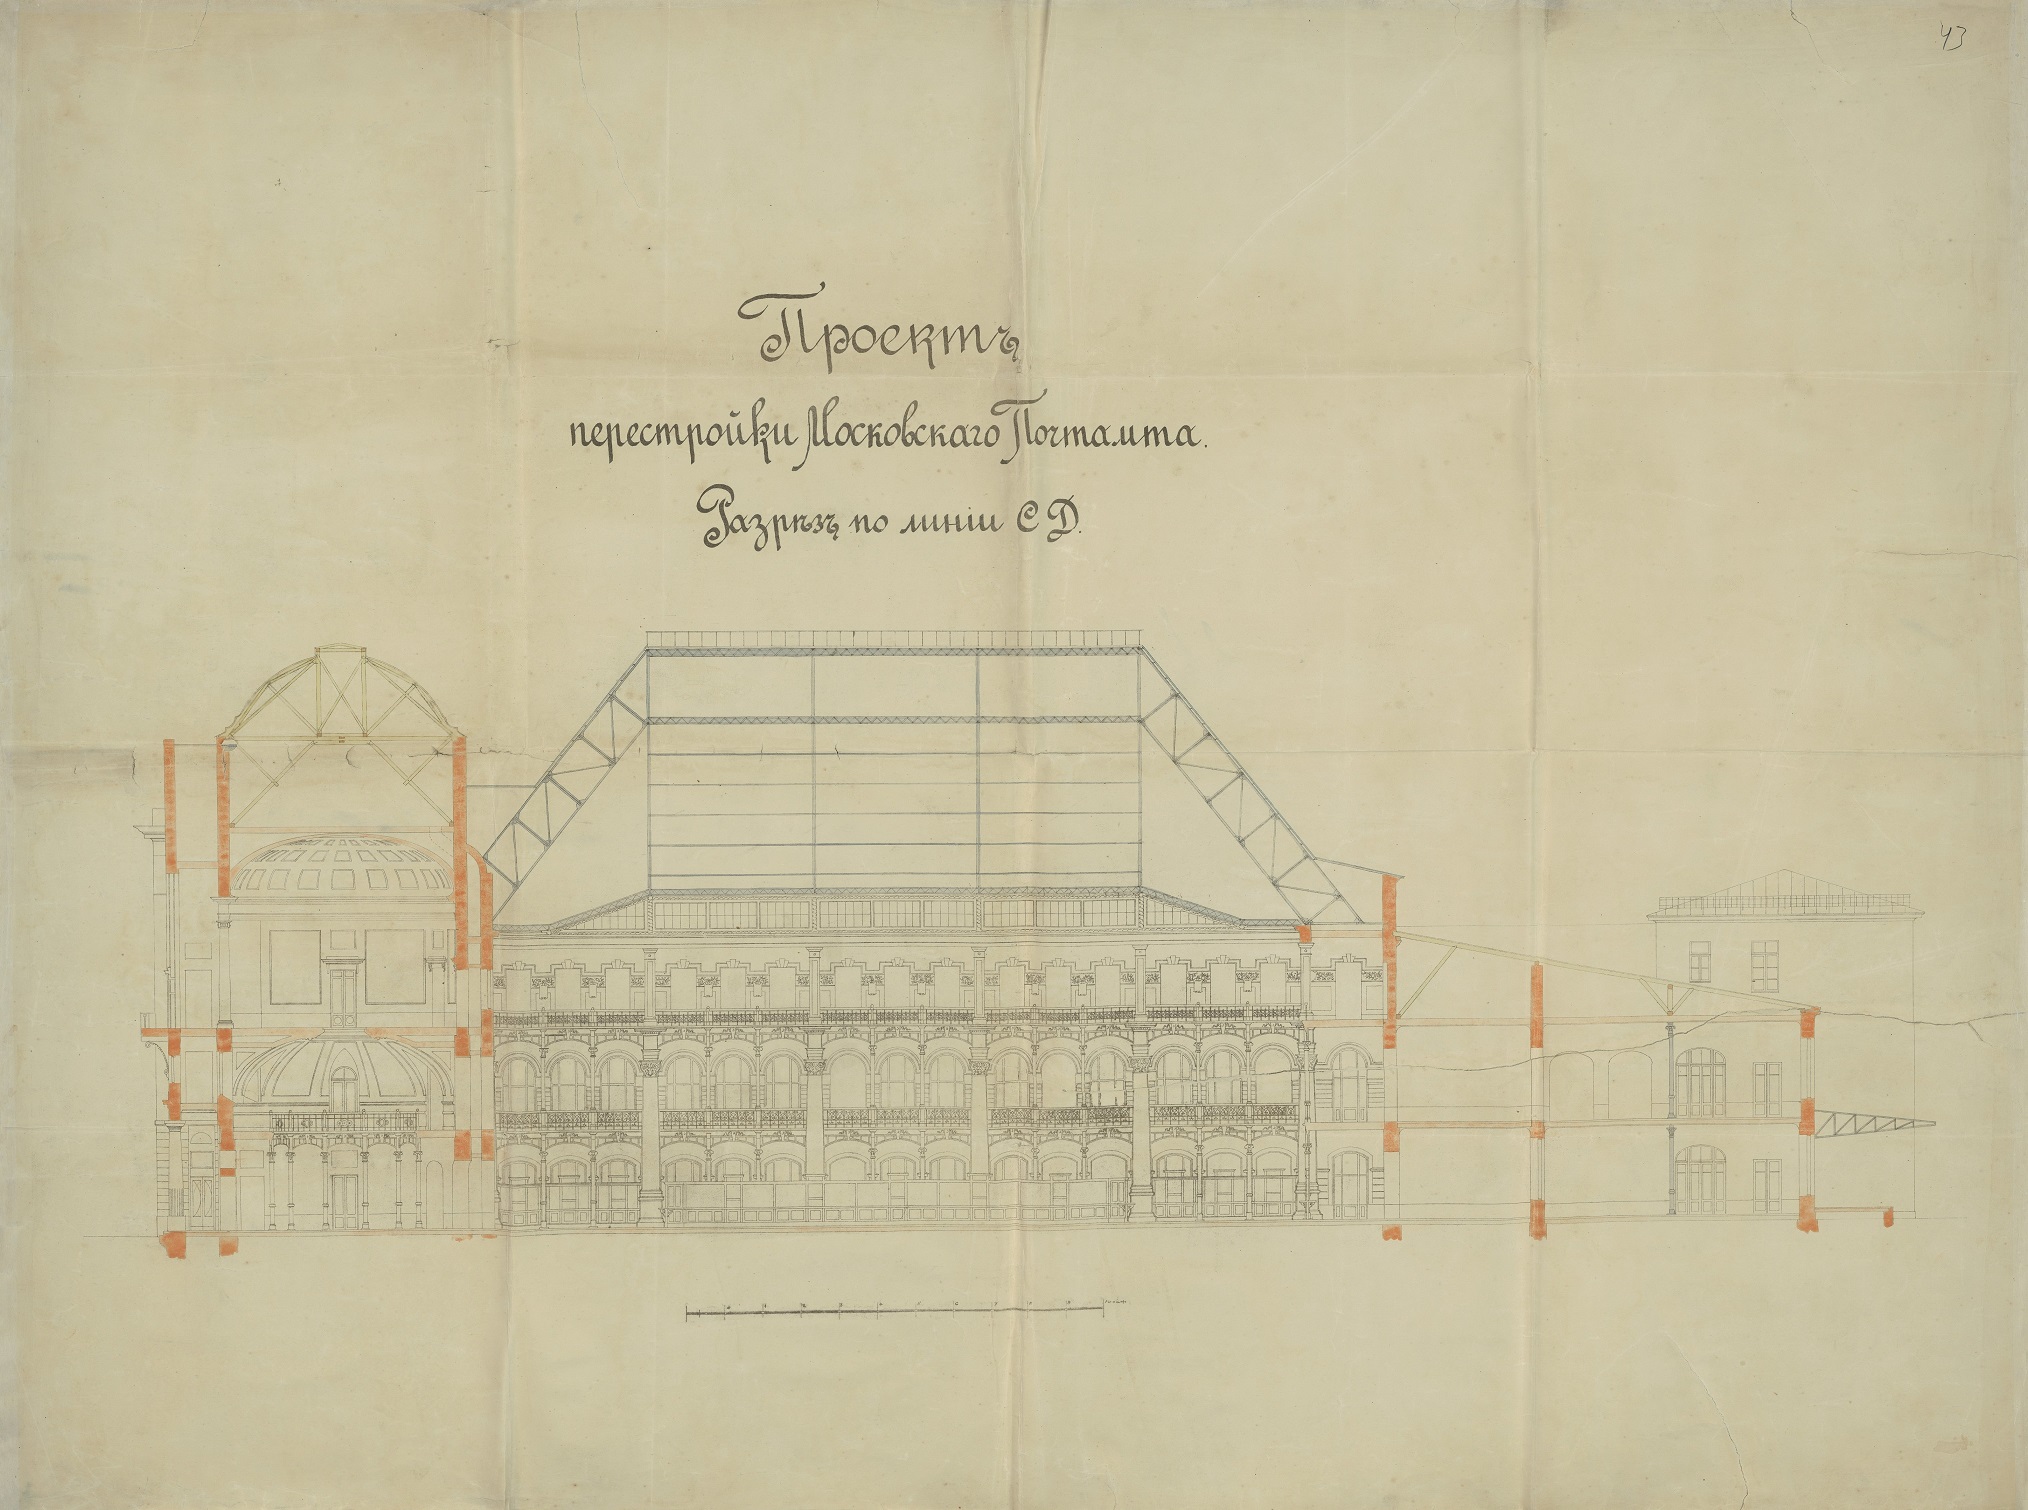 43
Проектъ
перестройки Московскаго Почтамта.
Разрѣзъ по линіи С Д.